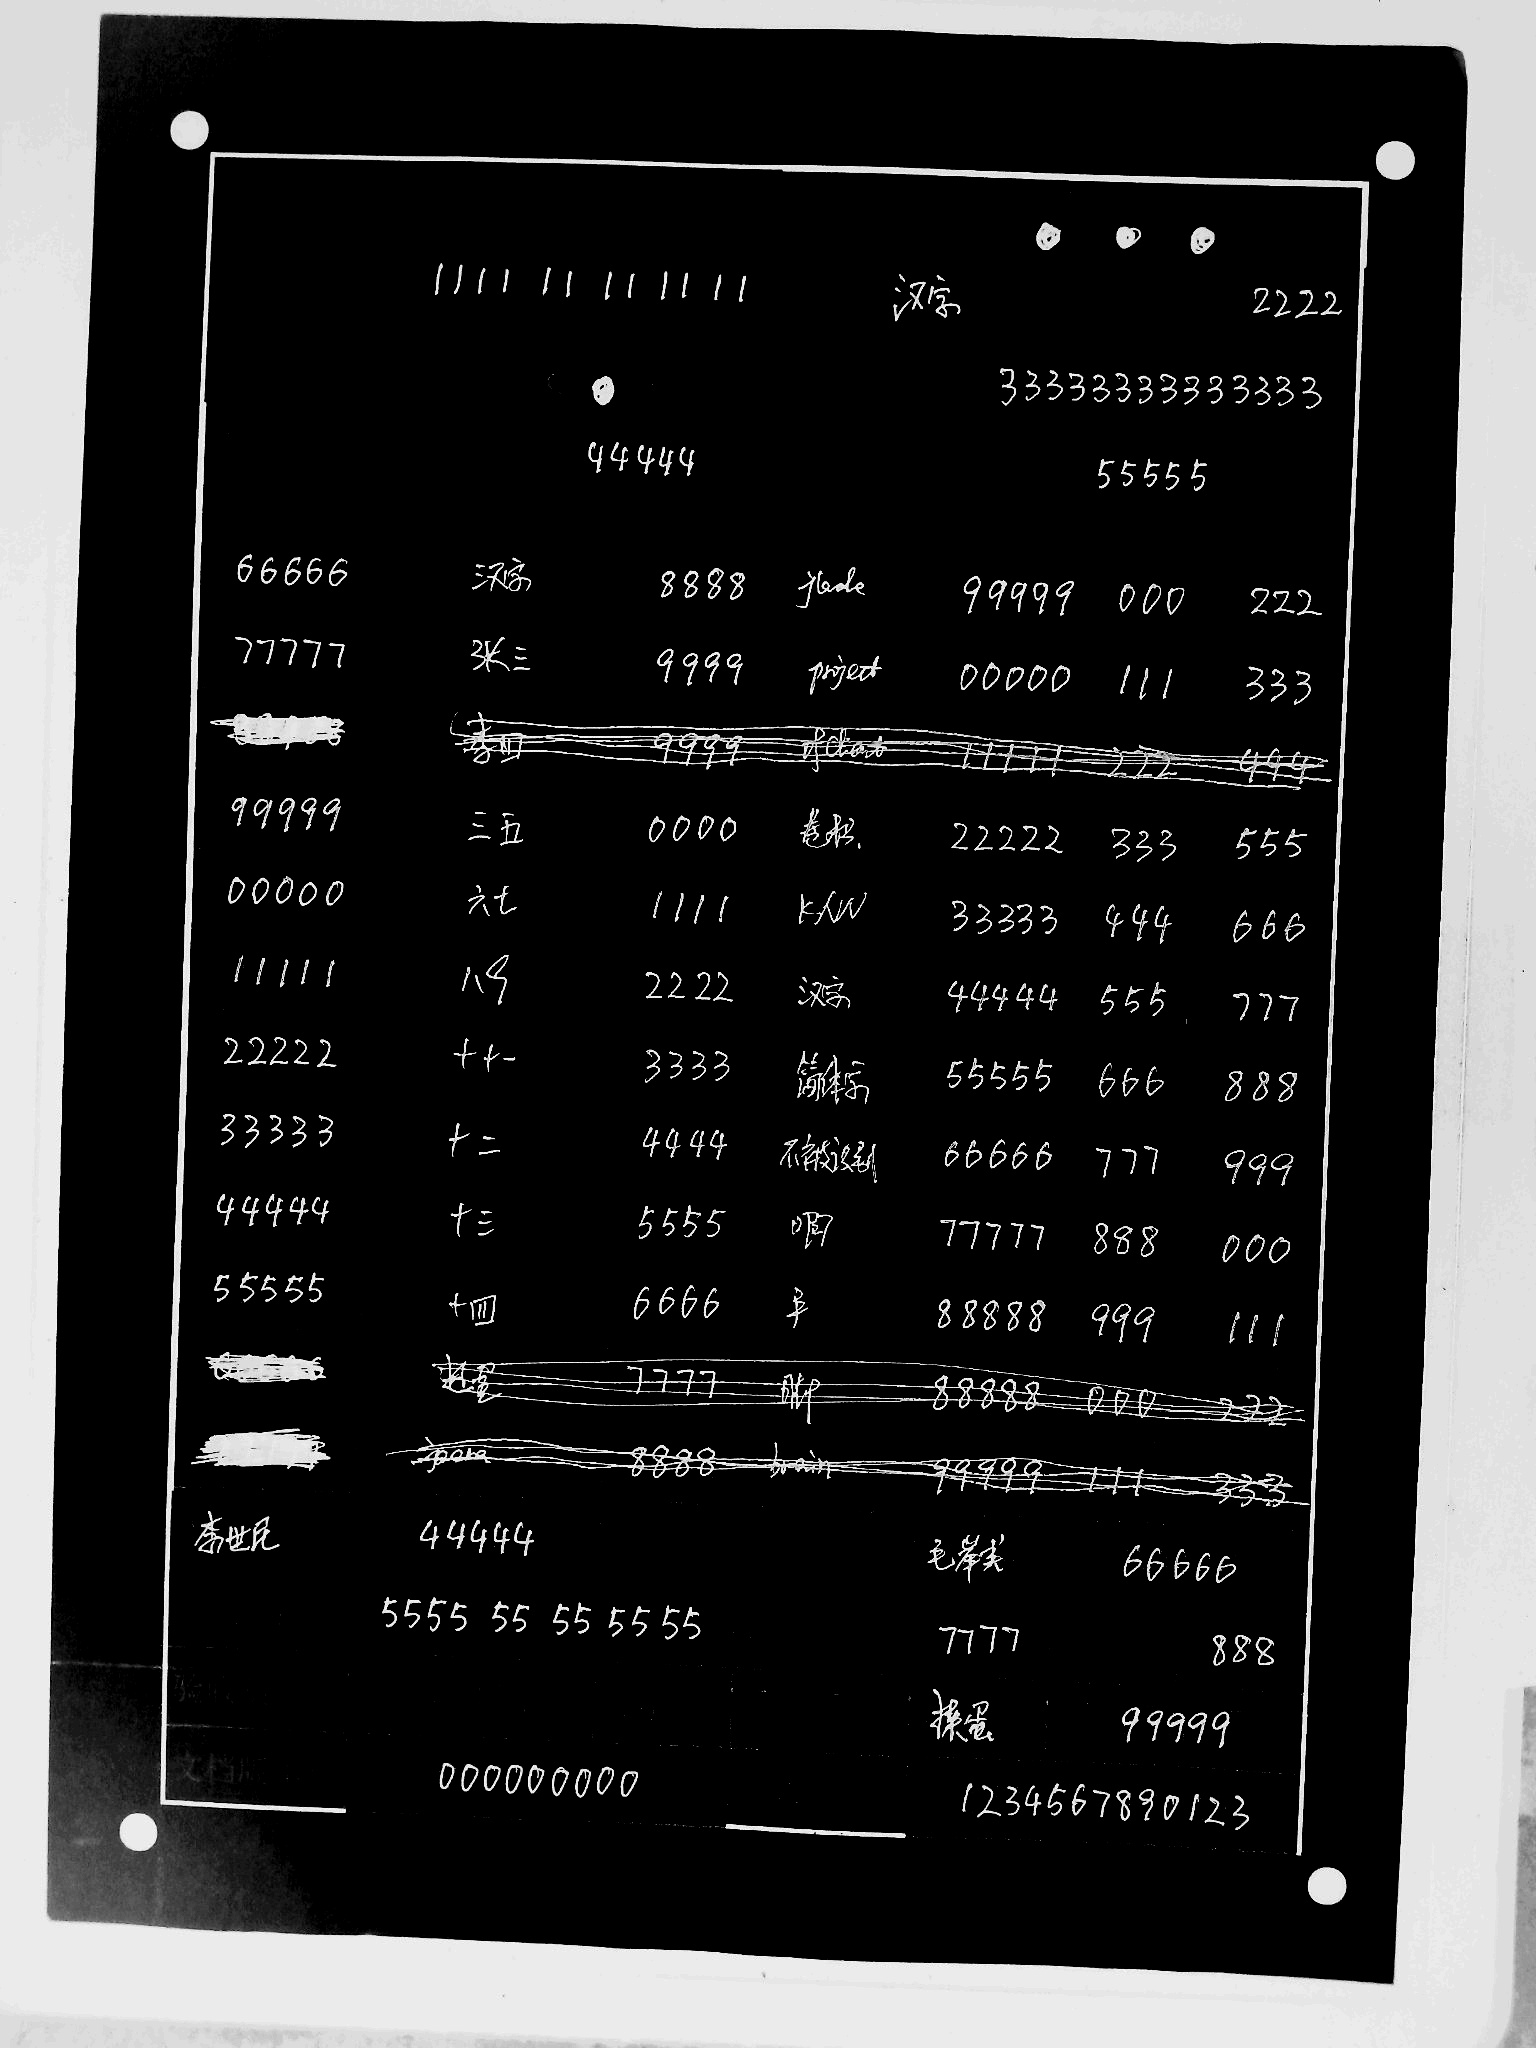 1111 11 11 11 11 汉字 2222
33333333333333
44444 55555
66666 汉字 8888 99999 000 222
77777 张三 9999 project 00000 111 333
李四 9999 11111 222 444
99999 三五 0000 卷积 22222 333 555
00000 六七 1111 33333 444 666
11111 八 2222 汉字 44444 555 777
22222 十十一 3333 简体字 55555 666 888
33333 十二 4444 不被识别 66666 777 999
44444 十三 5555 77777 888 000
55555 十四 6666 88888 999 111
7777 88888 000 222
8888 brain 99999 111 333
李世民 44444 毛 66666
5555 55 55 55 55 7777 888
蛋 99999
000000000 1234567890123